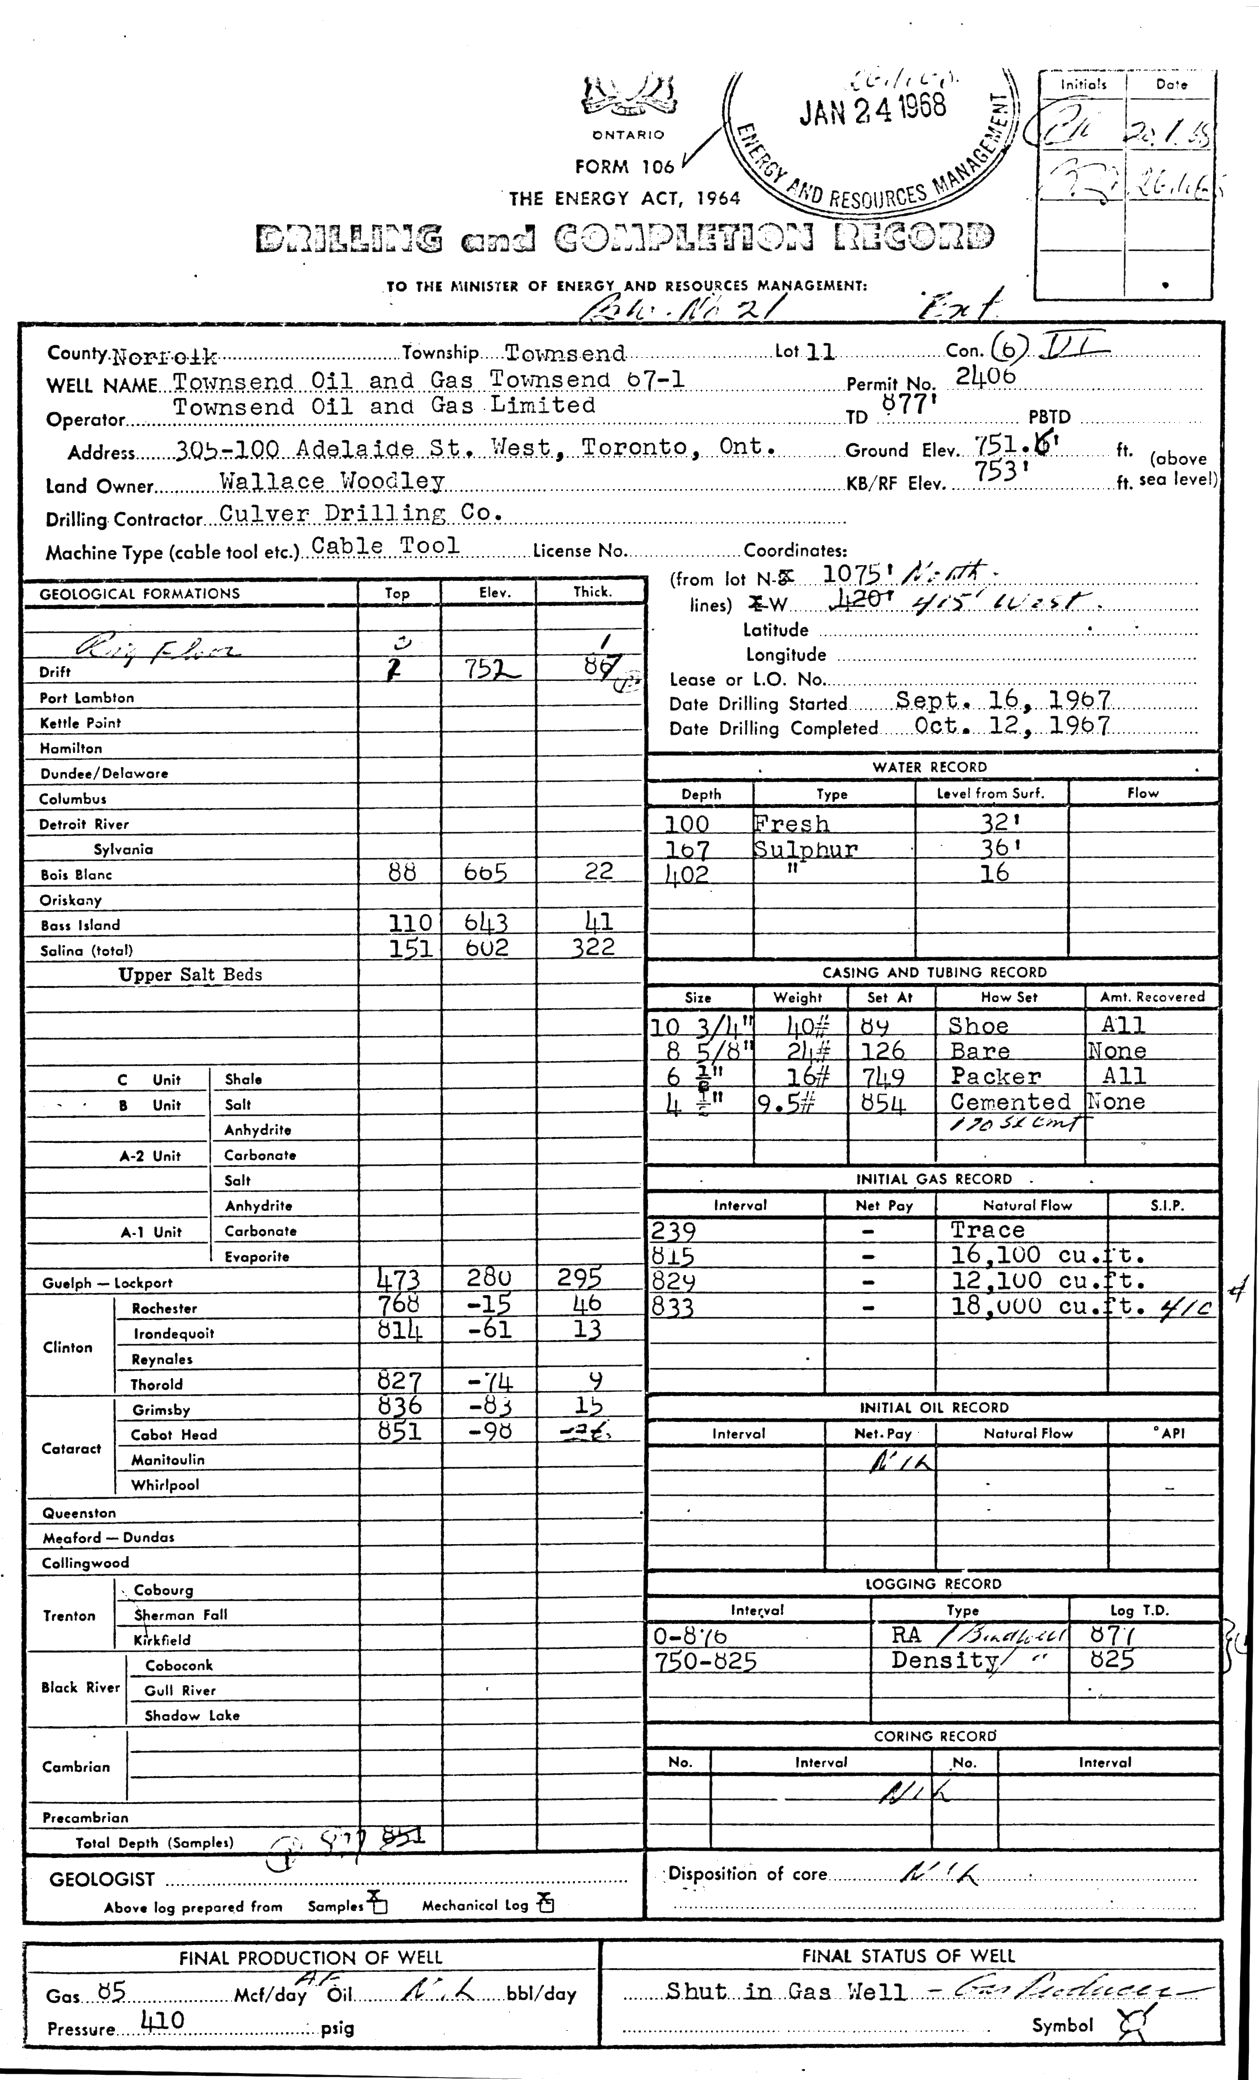 JAN 24 1968
ENERGY AND RESOURCES MANAGEMENT
Initials Date
ONTARIO
FORM 106
THE ENERGY ACT, 1964
DRILLING and COMPLETION RECORD
TO THE MINISTER OF ENERGY AND RESOURCES MANAGEMENT:
No 21 Ext
County Norfolk Township Townsend Lot 11 Con. (6) VI
WELL NAME Townsend Oil and Gas Townsend 67-1 Permit No. 2406
Operator Townsend Oil and Gas Limited TD 877' PBTD
Address 305-100 Adelaide St. West, Toronto, Ont. Ground Elev. 751.6' ft. (above
Land Owner Wallace Woodley KB/RF Elev. 753' ft. sea level)
Drilling Contractor Culver Drilling Co.
Machine Type (cable tool etc.) Cable Tool License No. Coordinates:
(from lot N-S 1075' North
lines) E-W 420' 415' West
Latitude
Longitude
Lease or L.O. No.
Date Drilling Started Sept. 16, 1967
Date Drilling Completed Oct. 12, 1967
GEOLOGICAL FORMATIONS Top Elev. Thick.
Rig Floor 0 1
Drift 752 87
Port Lambton
Kettle Point
Hamilton
Dundee/Delaware
Columbus
Detroit River
Sylvania
Bois Blanc 88 665 22
Oriskany
Bass Island 110 643 41
Salina (total) 151 602 322
Upper Salt Beds
C Unit Shale
B Unit Salt
Anhydrite
A-2 Unit Carbonate
Salt
Anhydrite
A-1 Unit Carbonate
Evaporite
Guelph — Lockport 473 280 295
Clinton
Rochester 768 -15 46
Irondequoit 814 -61 13
Reynales
Thorold 827 -74 9
Cataract
Grimsby 836 -83 15
Cabot Head 851 -98
Manitoulin
Whirlpool
Queenston
Meaford — Dundas
Collingwood
Trenton
Cobourg
Sherman Fall
Kirkfield
Black River
Coboconk
Gull River
Shadow Lake
Cambrian
Precambrian
Total Depth (Samples) 877 851
GEOLOGIST
Above log prepared from Samples X Mechanical Log X
WATER RECORD
Depth Type Level from Surf. Flow
100 Fresh 32'
167 Sulphur 36'
402 " 16
CASING AND TUBING RECORD
Size Weight Set At How Set Amt. Recovered
10 3/4" 40# 89 Shoe All
8 5/8" 24# 126 Bare None
6 ½" 16# 749 Packer All
4 ½" 9.5# 854 Cemented None
170 sx cmt
INITIAL GAS RECORD
Interval Net Pay Natural Flow S.I.P.
239 - Trace
815 - 16,100 cu.ft.
829 - 12,100 cu.ft.
833 - 18,000 cu.ft. 410
INITIAL OIL RECORD
Interval Net Pay Natural Flow °API
NIL
LOGGING RECORD
Interval Type Log T.D.
0-876 RA / Birdwell 877
750-825 Density / " 825
CORING RECORD
No. Interval No. Interval
NIL
Disposition of core NIL
FINAL PRODUCTION OF WELL
Gas 85 Mcf/day AF Oil NIL bbl/day
Pressure 410 psig
FINAL STATUS OF WELL
Shut in Gas Well - Gas Producer
Symbol